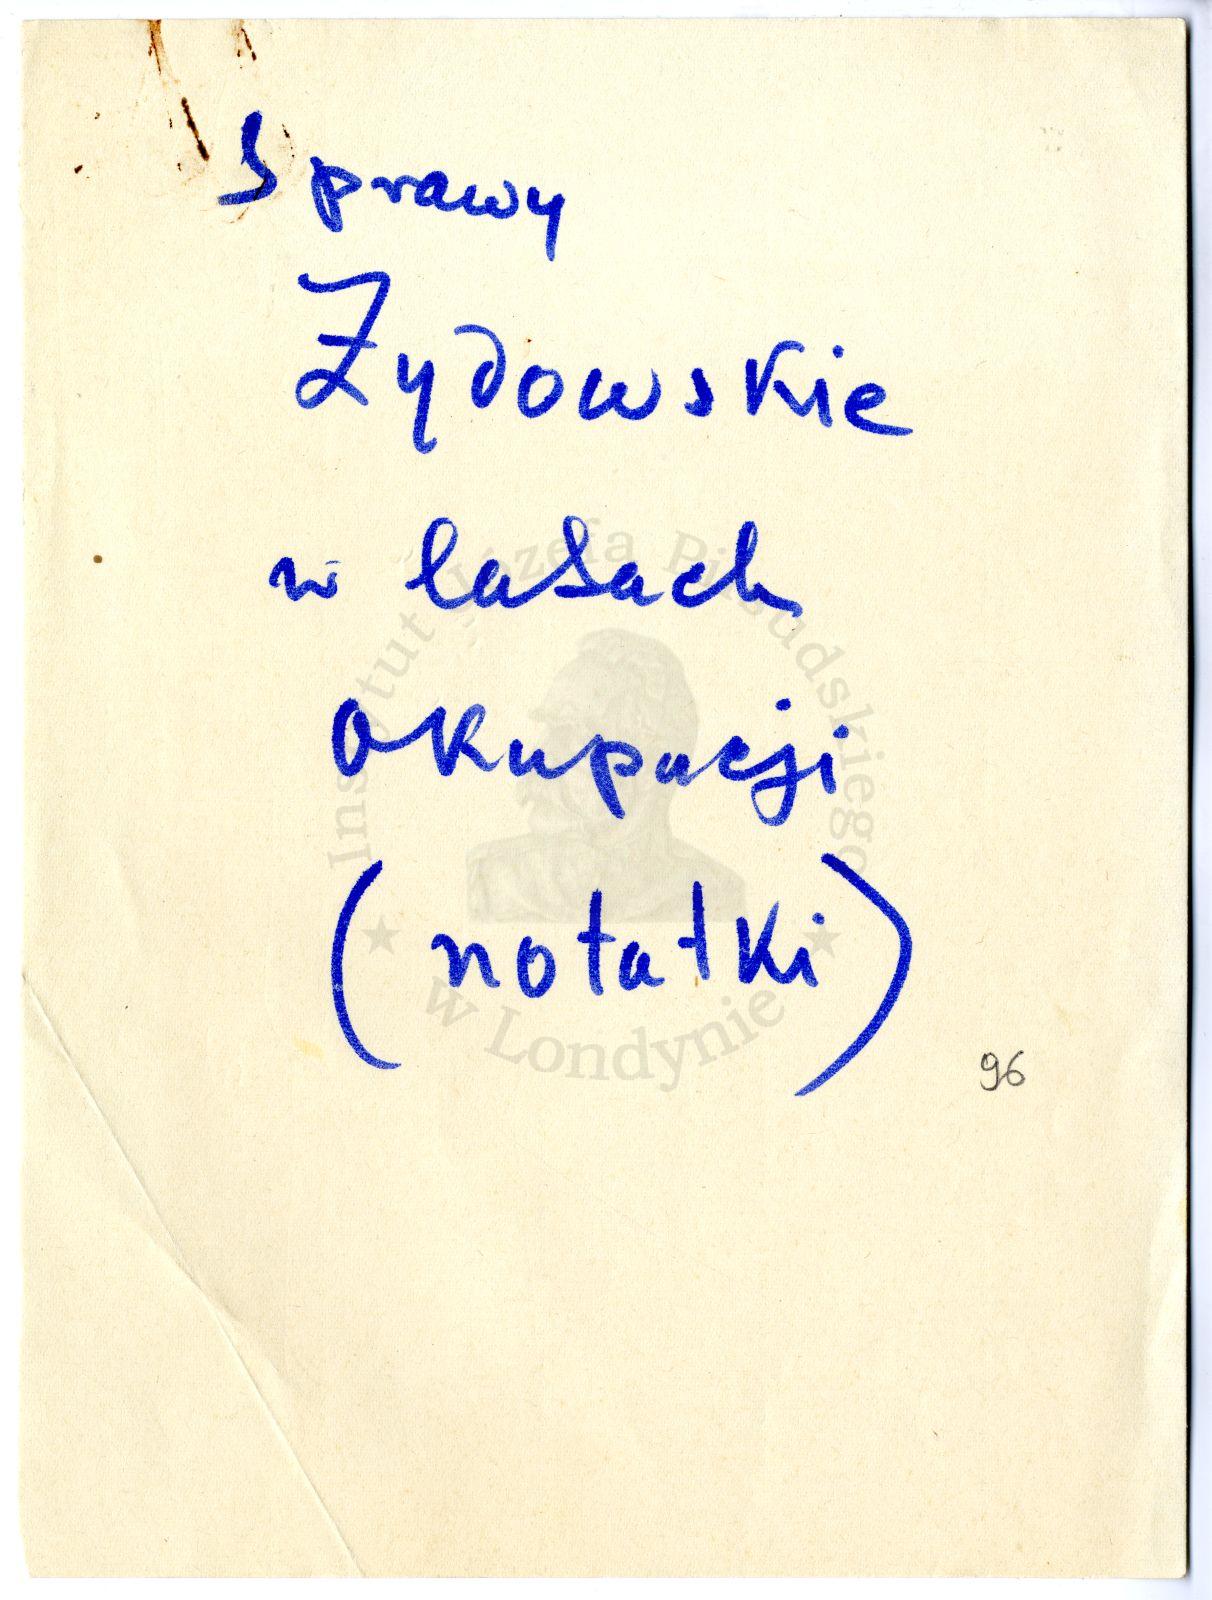 Sprawy
Żydowskie
w lasach
okupacji
(notatki)
96
Instytut Józefa Piłsudskiego
w Londynie